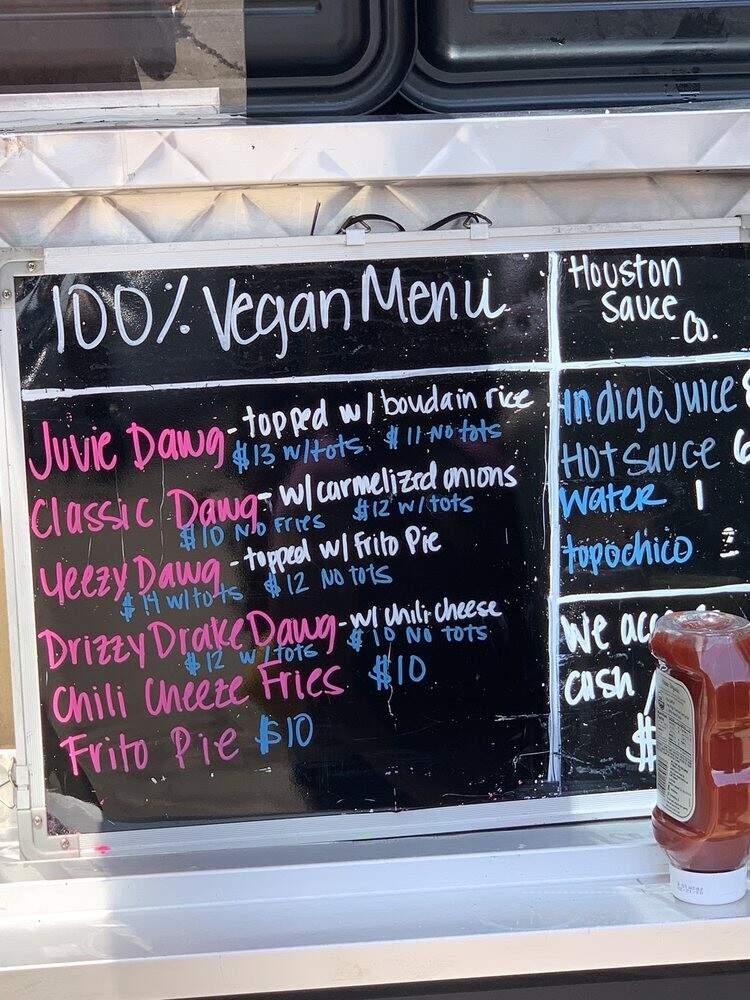 100% Vegan Menu
Juvie Dawg - topped w/ boudain rice
$13 w/tots, $11 No tots
Classic Dawg - w/ carmelized onions
$10 No Fries $12 w/tots
Yeezy Dawg - topped w/ Frito Pie
$14 w/tots $12 No tots
Drizzy Drake Dawg - w/ chili cheese
$12 w/tots $10 No tots
Chili Cheeze Fries $10
Frito Pie $10
Houston
Sauce
Co.
Indigo Juice
Hot Sauce 6
Water 1
topochico 2
We
cash
$